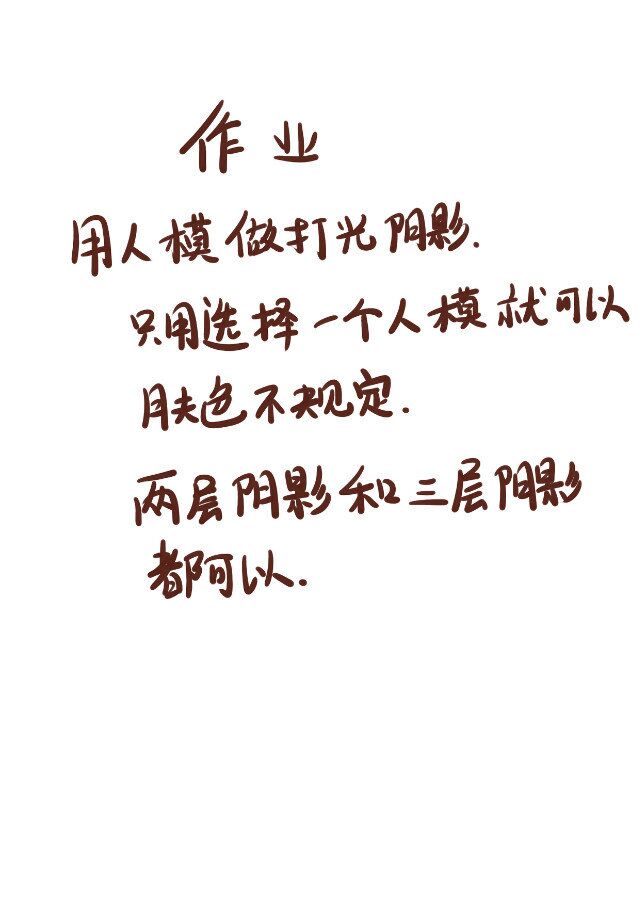 作业
用人模做打光阴影.
只用选择一个人模就可以
肤色不规定.
两层阴影和三层阴影
都可以.